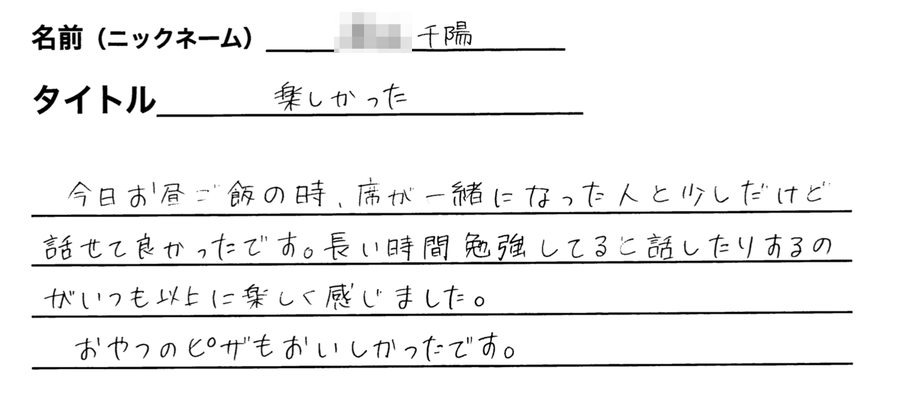 名前（ニックネーム） 千陽
タイトル 楽しかった
今日お昼ご飯の時、席が一緒になった人と少しだけど
話せて良かったです。長い時間勉強してると話したりするの
がいつも以上に楽しく感じました。
おやつのピザもおいしかったです。